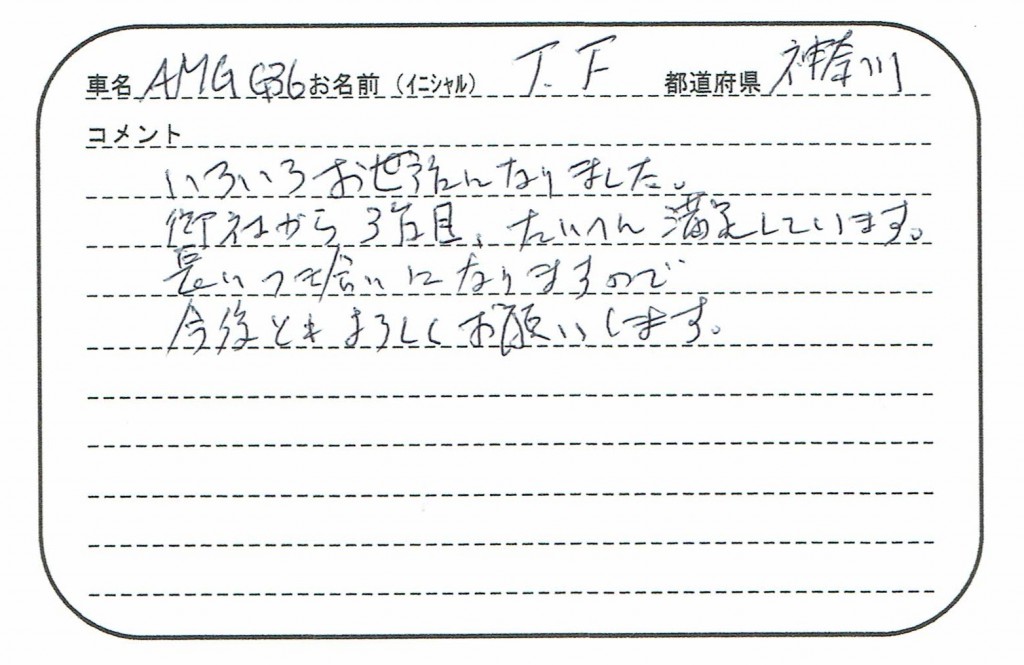 車名 AMG G36 お名前（イニシャル） T.F 都道府県 神奈川
コメント
いろいろお世話になりました。
御社から3台目、たいへん満足しています。
長いつき合いになりますので
今後ともよろしくお願いします。